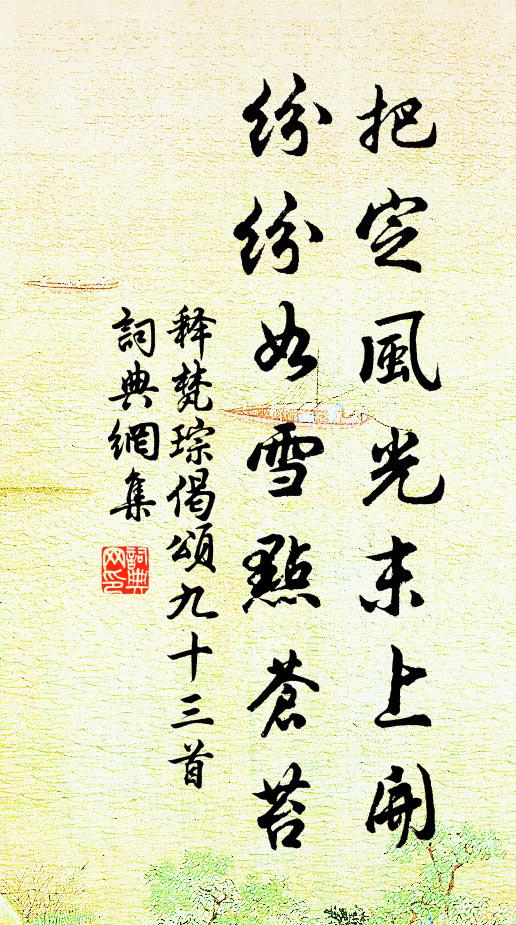 把定風光末上開
紛紛如雪點蒼苔
释梵琮偈頌九十三首
詞典網集
詞典網印